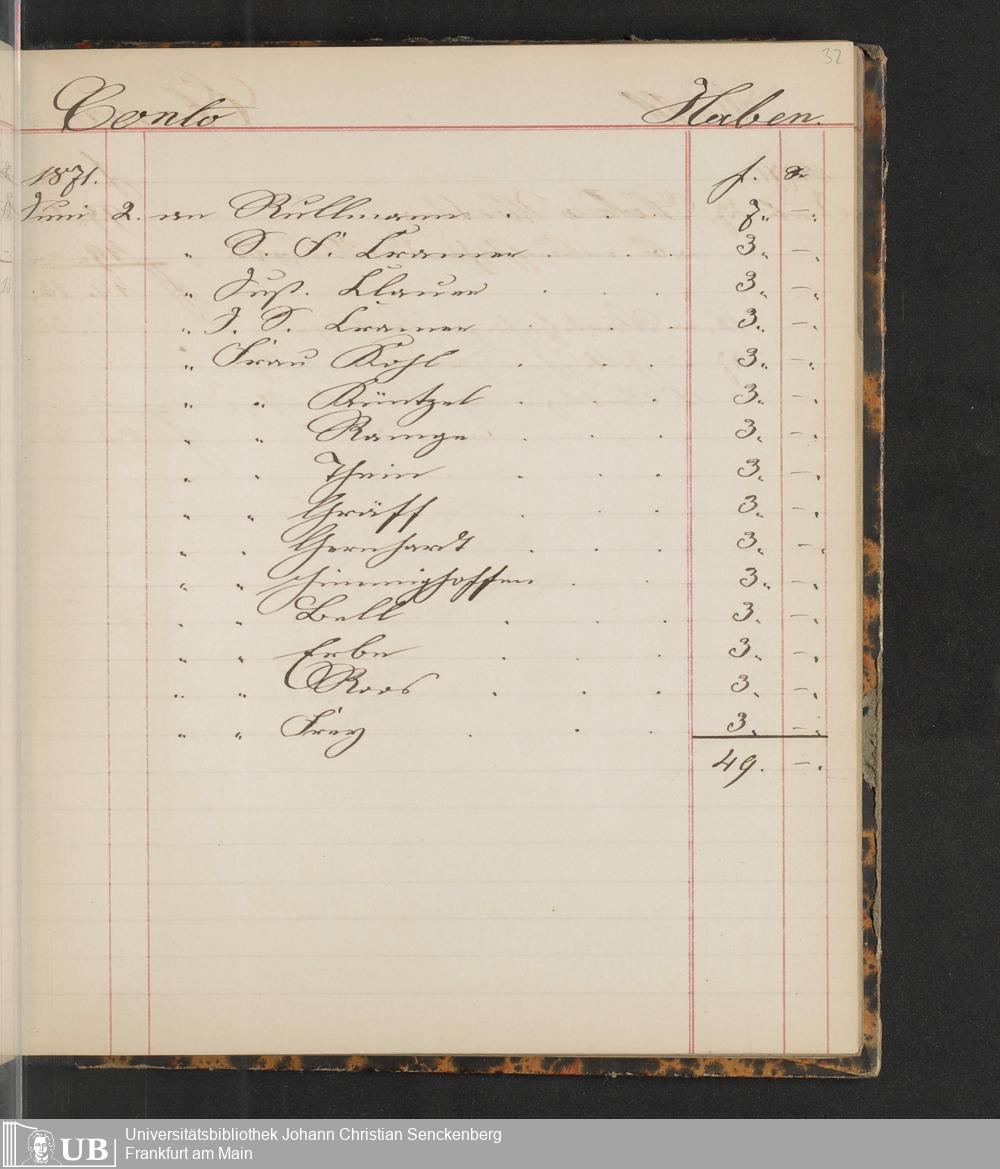 32
Conto Haben.
1871. f. x
Juni 2. an Rullmann . . . 7. –.
" S. F. Cramer . . . 3. –.
" Just. Claue . . . 3. –.
" J. S. Cramer . . . 3. –.
" Frau Kohl . . . 3. –.
" " Küntzel . . . 3. –.
" " Ramge . . . 3. –.
" " Thein . . . 3. –.
" " Gräff . . . 3. –.
" " Gernhardt . . . 3. –.
" " Himmighoffen . . 3. –.
" " Bell . . . 3. –.
" " Erbe . . . 3. –.
" " Roos . . . 3. –.
" " Frey . . . 3. –.
49. –.
UB
Universitätsbibliothek Johann Christian Senckenberg
Frankfurt am Main